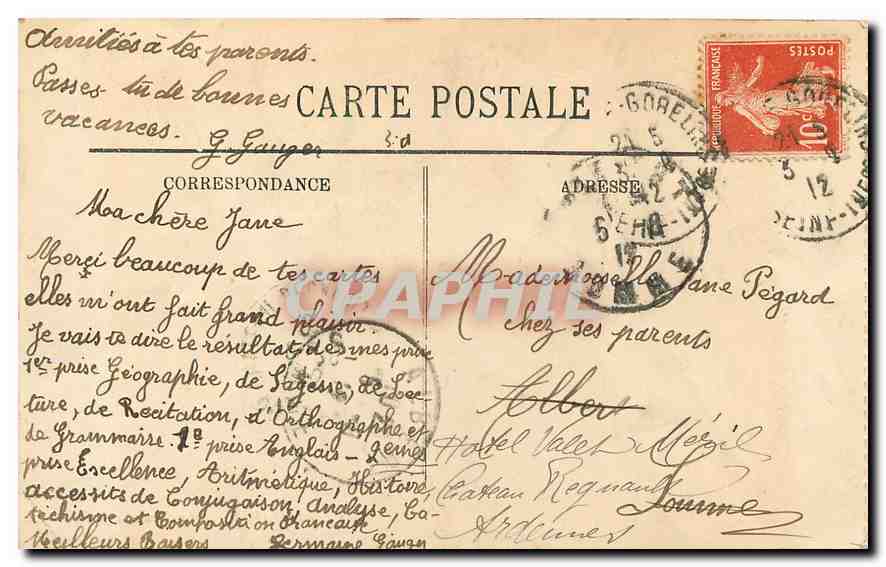 Amitiés à tes parents.
Passes-tu de bonnes
vacances.
G. Gauger
CARTE POSTALE
CORRESPONDANCE
ADRESSE
Ma chère Jane
Merci beaucoup de tes cartes
elles m'ont fait grand plaisir.
Je vais te dire le résultat des mes prix
1er prise Géographie, de Sagesse, de Lec-
ture, de Récitation, d'Orthographe et
de Grammaise. 1er prise Anglais - 2emes
prise Excellence, Aritmétique, Histoire,
accessits de Conjugaison, Analyse, Ca-
téchisme et Composition Francaise
Meilleurs Baisers Germaine Gauger
Mademoiselle Jane Pégard
chez ses parents
Albert
Hotel Valet
Chateau Regnault
Somme
Ardennes
REPUBLIQUE FRANÇAISE
POSTES
10c
CPAPHIL